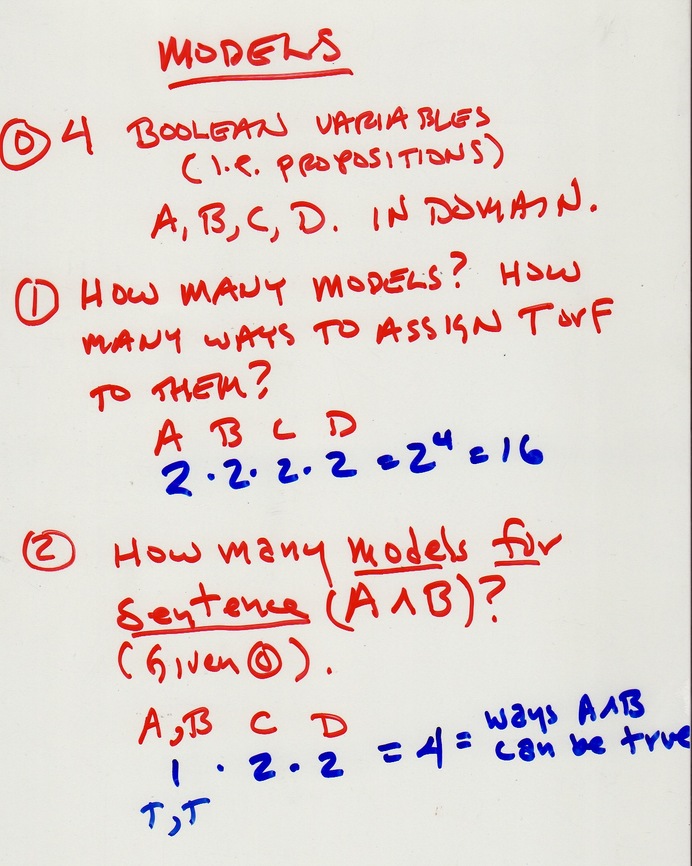 MODELS
⓪ 4 BOOLEAN VARIABLES
(i.e. PROPOSITIONS)
A, B, C, D. IN DOMAIN.
① HOW MANY MODELS? HOW
MANY WAYS TO ASSIGN T or F
TO THEM?
A B C D
2 · 2 · 2 · 2 = 2⁴ = 16
② How many models for
sentence (A ∧ B)?
(Given ⓪).
A, B C D
1 · 2 · 2 = 4 = ways A∧B can be true
T, T